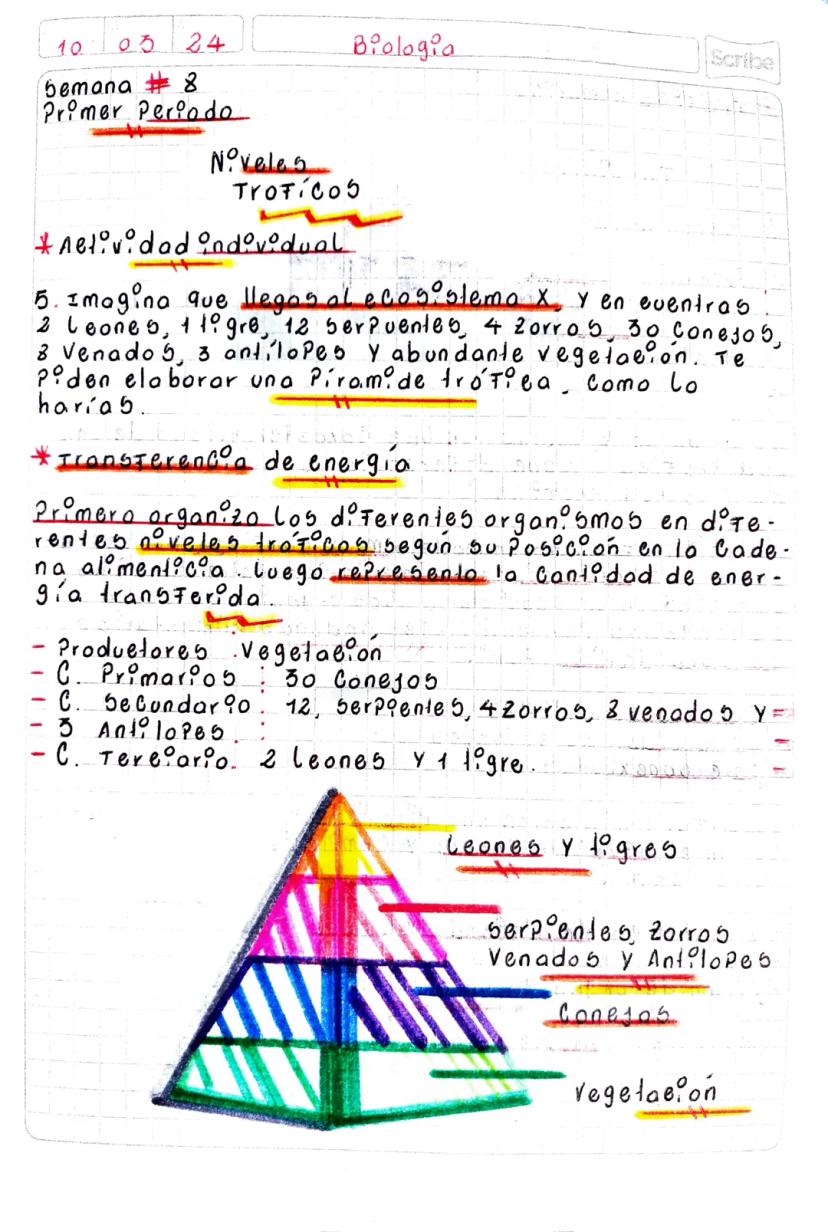 10 03 24 Biología
Scribe
Semana # 8
Primer Periodo
Niveles
Troficos
* Actividad individual
5. Imagina que llegas al ecosistema X, y en cuentras
2 leones, 1 tigre, 12 serpuentes, 4 zorros, 30 conejos,
8 venados, 3 antílopes y abundante vegetación. Te
piden elaborar una Piramide trófica. como lo
harías.
* Transferencia de energía
Primero organizo los diferentes organismos en dife-
rentes niveles troficos según su posición en la cade-
na alimenticia. luego represento la cantidad de ener-
gía transferida.
- Productores : Vegetación
- C. Primarios : 30 conejos
- C. Secundario : 12, serpientes, 4 zorros, 8 venados y =
- 3 Antilopes. : -
- C. Terciario. 2 leones y 1 tigre. -
leones y tigres
Serpientes, zorros
Venados y Antilopes
Conejos
Vegetación